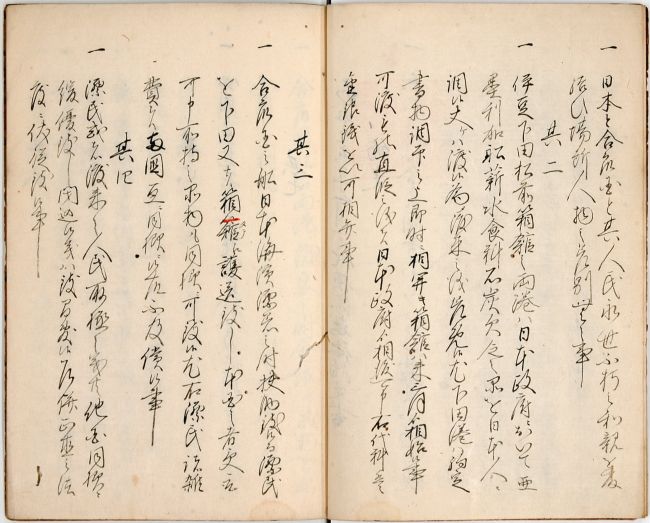 一 日本と合衆国と其人民永世不朽之和親を取
結ひ場所人物之差別無之事
其二
一 伊豆下田松前箱館之両港ハ日本政府ニおいて亜
墨利加船薪水食料石炭欠乏之品を日本人ニ而
調候丈ハ給候為渡来之儀差免候尤下田港ハ約定
書面調印之上即時ニ相開き箱館ハ来三月ゟ相始候事
可渡品物直段之儀ハ日本政府ゟ相極可申右代料者
金銀銭を以可相弁事
其三
一 合衆国之船日本海浜漂着之時扶助致し其漂民
を下田又ハ箱館ニ護送致し本国之者受取
可申所持之品物も同様可致候尤右漂民諸雑
費ハ両国互同様之事故不及償候事
其四
一 漂民或ハ渡来之人民取扱之義ハ他国同様ニ
緩優致し閉込候義ハ致間敷候乍併正直之法
度ニハ伏従致候事